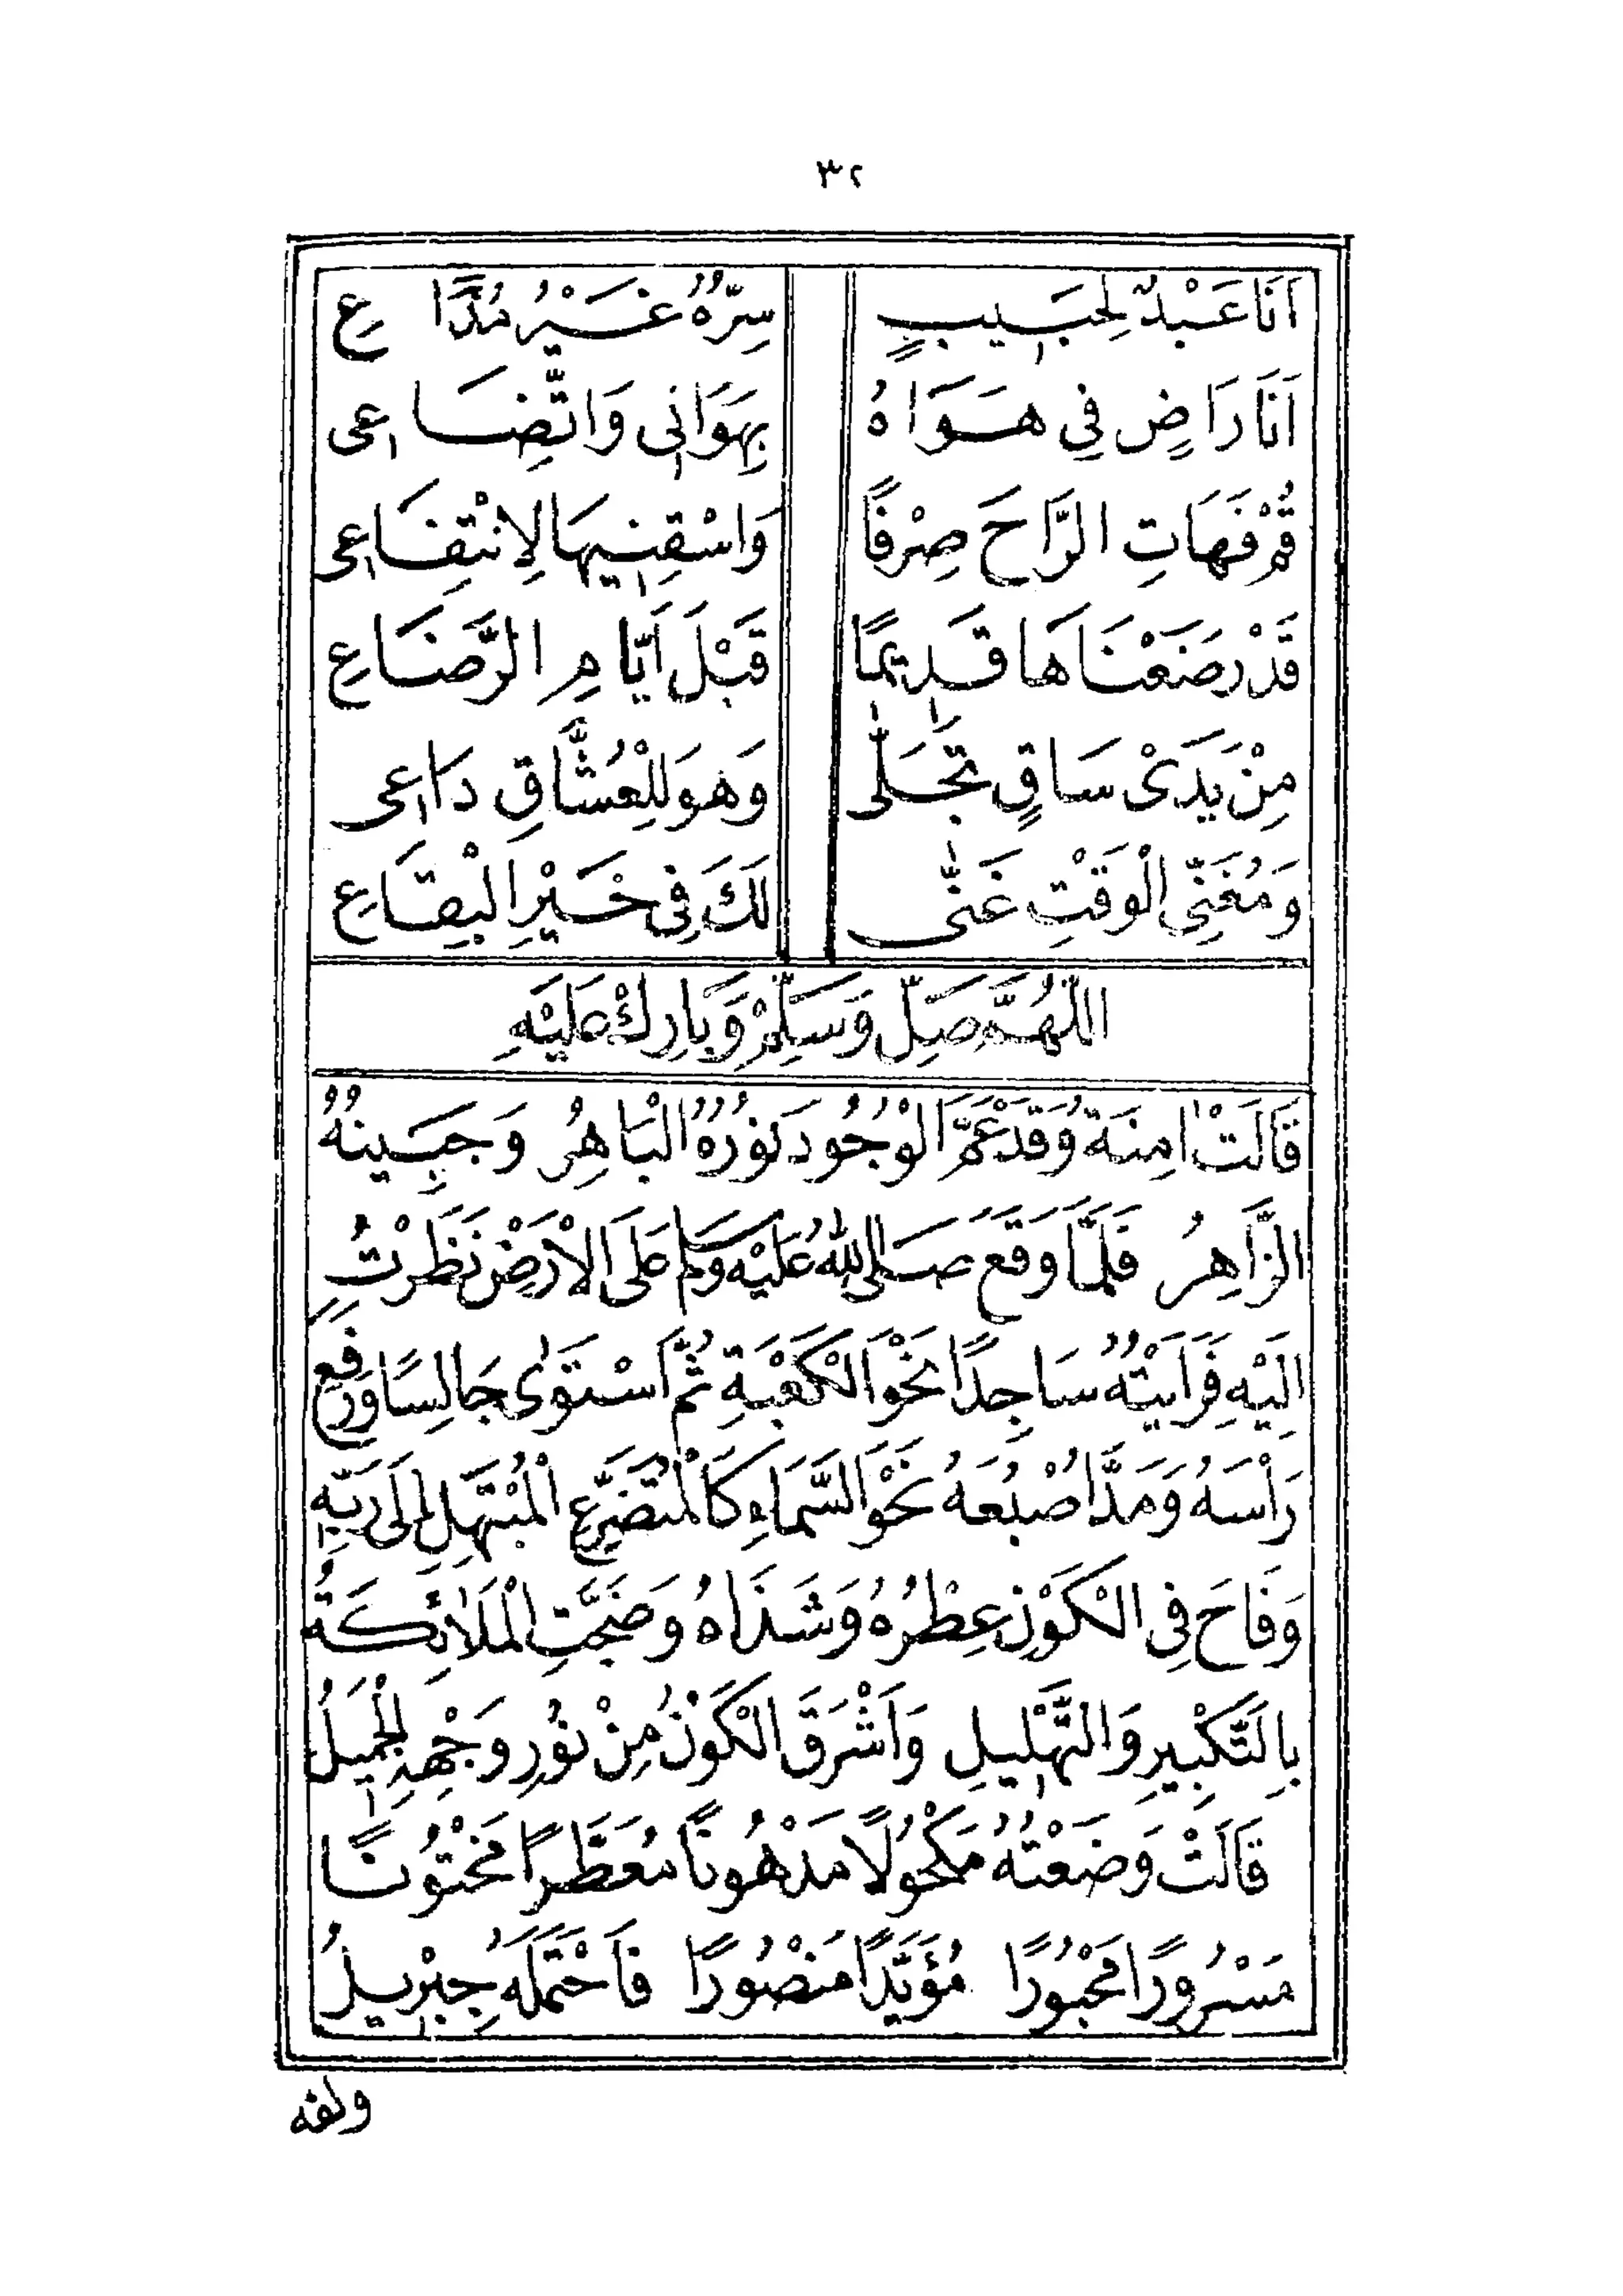 ٣٢
اَنَا عَبْدٌ لِحَبِيبٍ سِرُّهُ غَيْرُ مُذَاعِ
اَنَا رَاضٍ فِي هَوَاهُ بِهَوَانِى وَاتِّضَاعِى
قُمْ فَهَاتِ الرَّاحَ صِرْفًا وَاسْقِنِيهَا لِانْتِفَاعِى
قَدْ رَضَعْنَاهَا قَدِيمًا قَبْلَ اَيَّامِ الرَّضَاعِ
مِنْ يَدَىْ سَاقٍ تَجَلَّى وَهوَ لِلْعُشَّاقِ دَاعِى
وَمُغَنِّي الْوَقْتِ غَنَّى لَكَ فِى خَيْرِ الْبِقَاعِ
اَللّٰهُمَّ صَلِّ وَسَلِّمْ وَبَارِكْ عَلَيْهِ
قَالَتْ اٰمِنَةُ وَقَدْ عَمَّ الْوُجُودَ نُورُهُ الْبَاهِرُ وَجَبِينُهُ
الزَّاهِرُ فَلَمَّا وَقَعَ صَلَى اللّٰهُ عَلَيْهِ وَسَلَّم عَلَى الْاَرْضِ نَظَرْتُ
اِلَيْهِ فَرَاَيْتُهُ سَاجِدًا نَحْوَ الْكَعْبَةِ ثُمَّ اسْتَوٰى جَالِسًا وَرَفَعَ
رَأْسَهُ وَمَدَّ اُصْبُعَهُ نَحْوَ السَّمَاءِ كَالْمُتَضَرِّعِ الْمُبْتَهِلِ اِلَى رَبِّهِ
وَفَاحَ فِى الْكَوْنِ عِطْرُهُ وَشَذَاهُ وَضَجَّتِ الْمَلَائِكَةُ
بِالتَّكْبِيرِ وَالتَّهْلِيلِ وَاَشْرَقَ الْكَوْنُ مِنْ نُورِ وَجْهِهِ الْجَمِيلُ
قَالَتْ وَضَعْتُهُ مَكْحُولًا مَدْهُونًا مُعَطَّرًا مَخْتُونًا
مَسْرُورًا مَحْبُورًا مُؤَيَّدًا مَنْصُورًا فَاحْتَمَلَهُ جِبْرِيلُ
ولفه